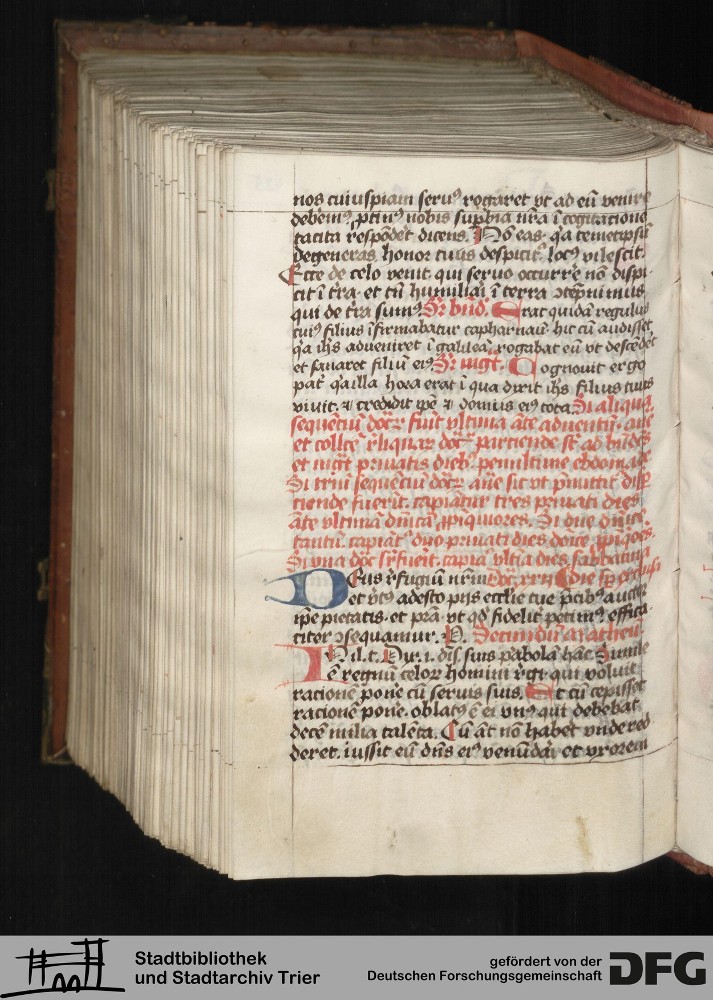 nos cuiuspiam seruꝰ rogaret vt ad eū venire
debemꝰ ꝓtinꝰ nobis supbia nr̄a ī cogitatione
tacita rñspōdet dicens. Nō eas. q̄a temetipsū
degeneras. honor tuus despicit᷑. locꝰ vilescit.
Ecce de celo venit. qui seruo occurrˀe nō dispi
cit ī tr̄a. et tn̄ humiliaī ī terra ꝯtēpnimus
qui de tr̄a sumꝰ Erat quidā regulus
cuiꝰ filius īfirmabatur capharnau᷑. hic cū audisset
q̄a ihs adveniret ī galileā. rogabat eū vt descēdēt
et sanaret filiū eiꝰ Cognovit ergo
pat᷑ q̄a illa hora erat ī qua dixit ihs filius tuus
viuit. ⁊ credidit ipē ⁊ domus eiꝰ tota. Si aliqua
sequētiū docȝ fuit vltima āte adventū. aūe
et collc̄e rˀliquaȝ docȝ partiende st̄ ad bn̄des
et mgt̄ priuatis diebꝫ penultime ebdomade
Si triū sequētiū docȝ aūe sic vt pmittit᷑ disp
tiende fuerīt. capiātur tres priuati dies
āte vltimā dn̄icā ꝓpiquiores. Si due dn̄ice
tantū. capiāt᷑ duo priuati dies dn̄ice ꝓpīqores.
Si vna doc̄ fuerit. capiat᷑ vltīa dies sabbatina
Deus rˀfugiū nrm̄
et vtꝰ adesto pijs ecclie tue pcibꝫ auctor
ipē pietatis. et pr̄a. vt qd̄ fidelit᷑ petimꝰ effica
citer ꝯsequamur. P. Secundū Matheū.
In il. t. Dix. i. dis. suis pabolā hāc. Simile
ē regnū celoȝ homini rˀgi. qui voluit
rationē ponˀe cū seruis suis. Et cū cepisset
rationē ponˀe. oblatꝰ ē ei vnꝰ qui debebat
decē milia talēta. Cū āt nō habet᷑ vnde red
deret. iussit eū dn̄s eiꝰ venūdaˀi et vxorem
Stadtbibliothek
und Stadtarchiv Trier
gefördert von der
Deutschen Forschungsgemeinschaft
DFG